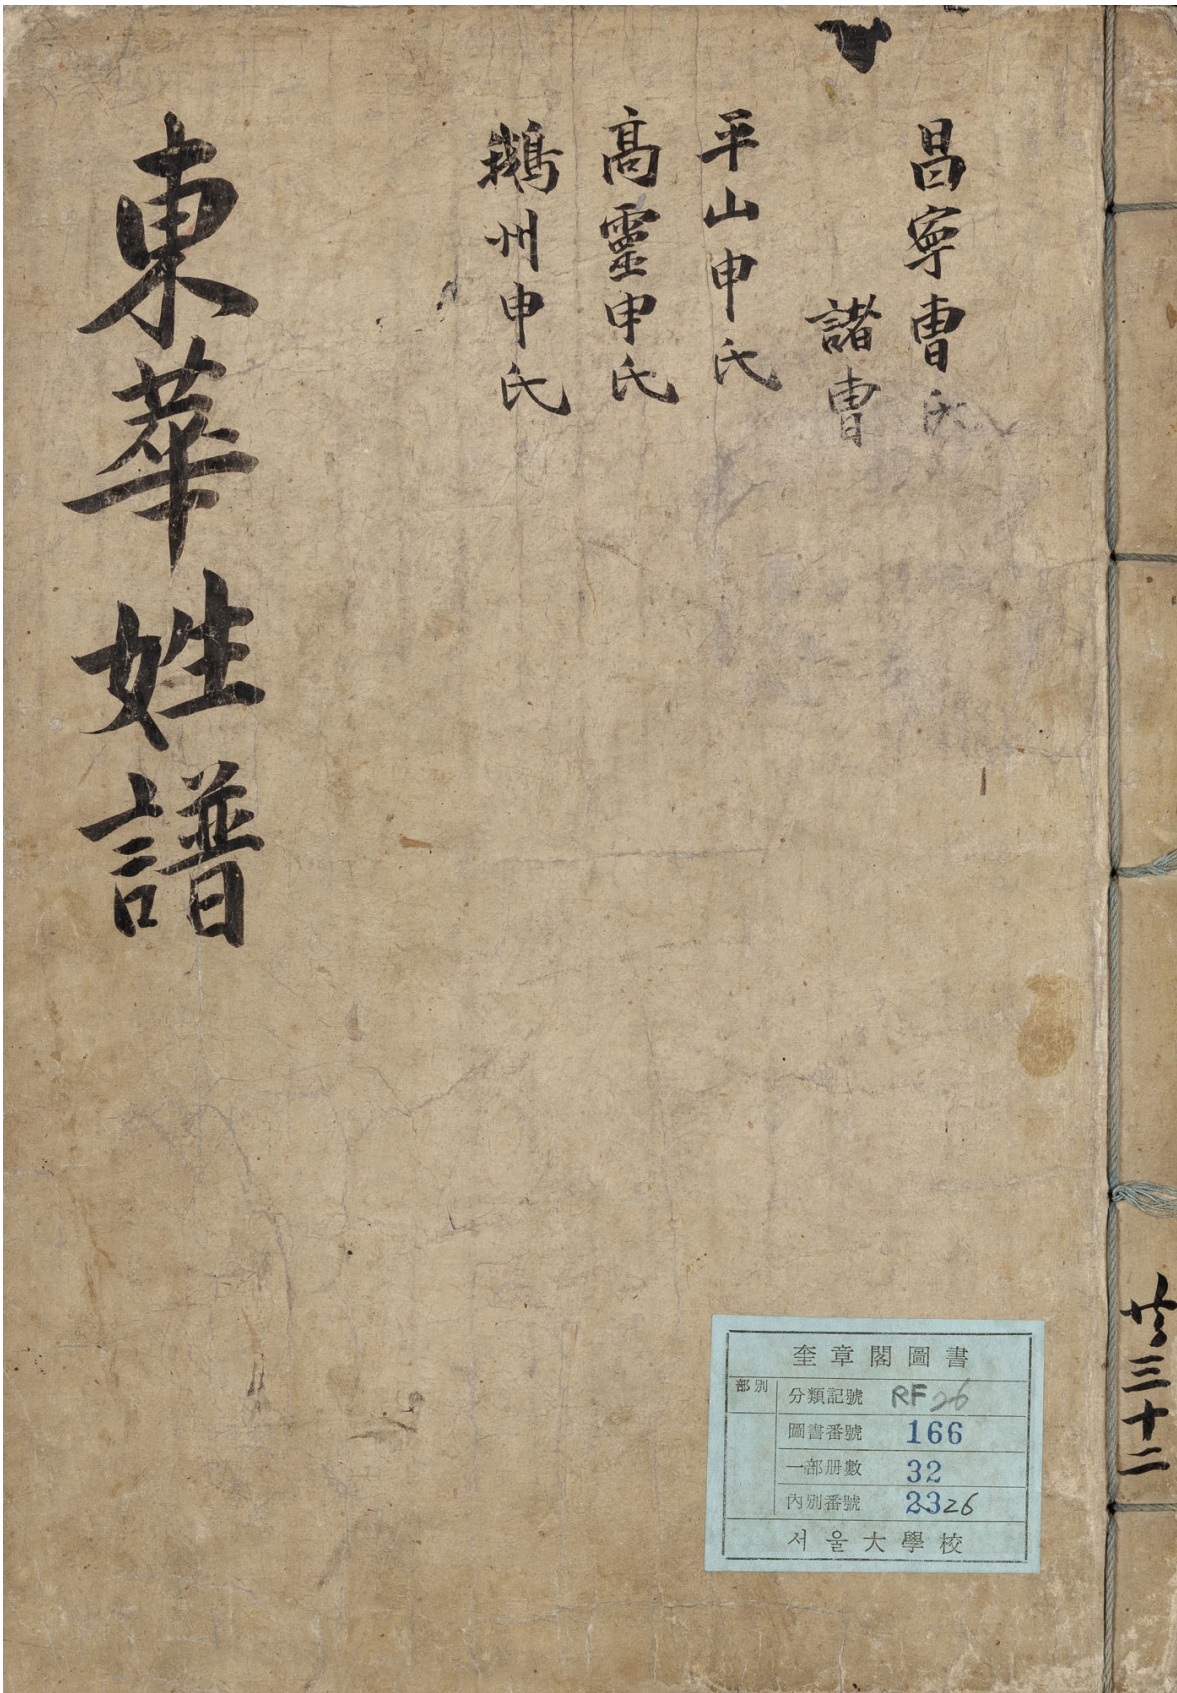 昌寧曺氏
諸曺
平山申氏
高靈申氏
鵝州申氏
東華姓譜
共三十二
奎章閣圖書
部別
分類記號 RF26
圖書番號 166
一部册數 32
內別番號 23 26
서울大學校